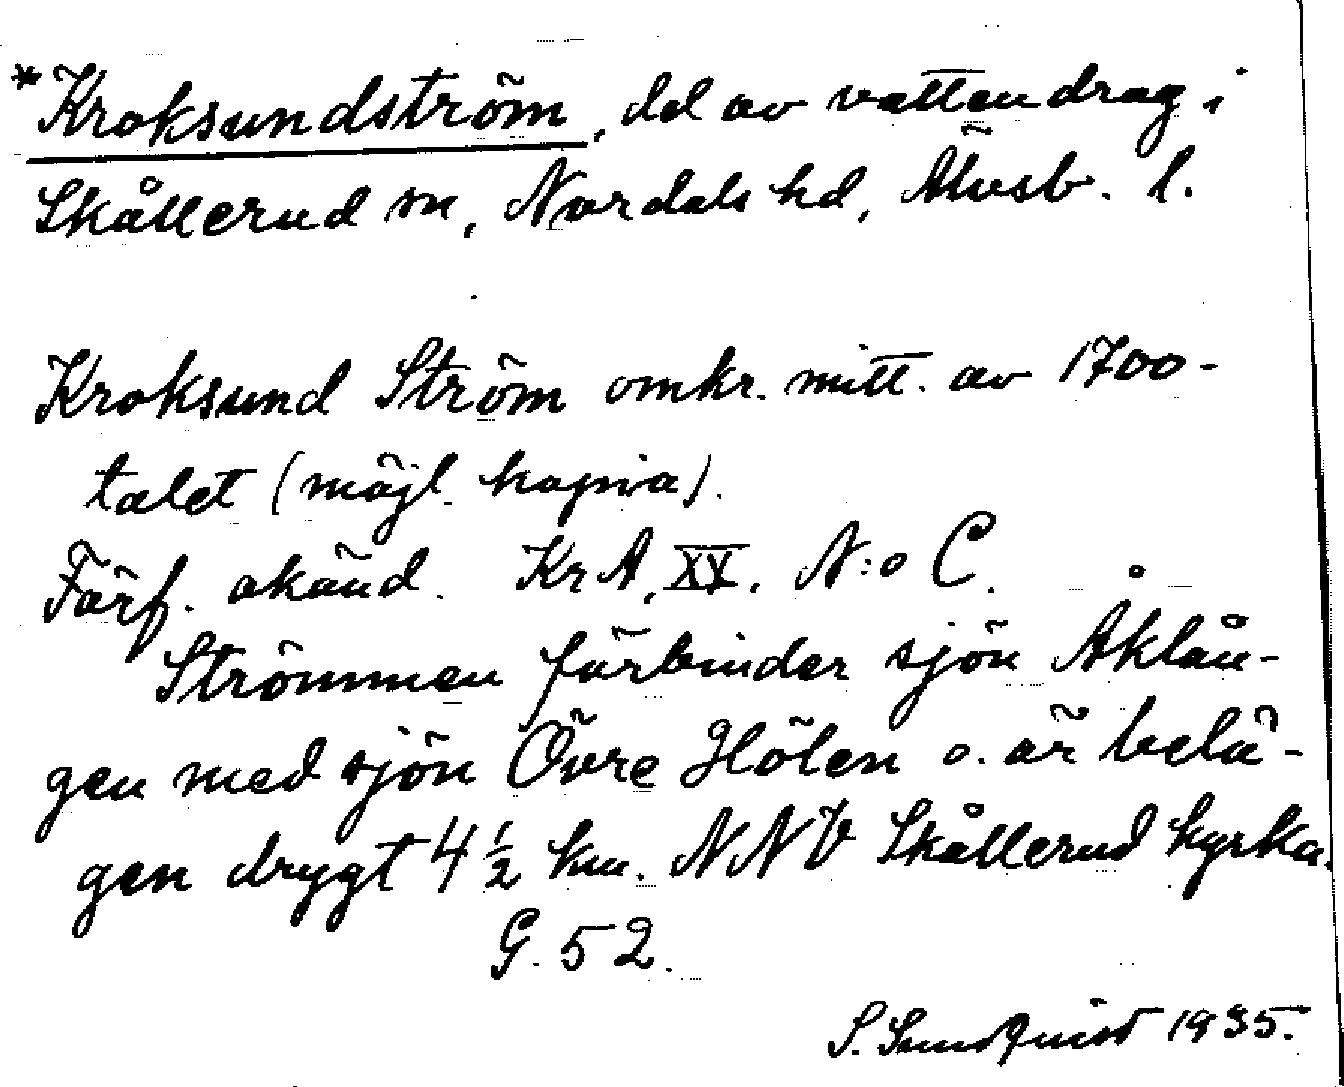 *Kroksundström, del av vattendrag i
Skållerud sn, Nordals hd, Älvsb. l.
Kroksund Ström omkr. mitt. av 1700-
talet (möjl. kopia).
Förf. okänd. KrA, XV, N:o C.
Strömmen förbinder sjön Åklån-
gen med sjön Övre Hölen o. är belä-
gen drygt 4 1/2 km. NNV Skållerud kyrka.
G. 52.
S. Sundquist 1935.